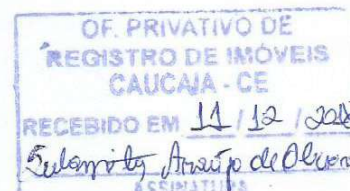 OF. PRIVATIVO DE
REGISTRO DE IMÓVEIS
CAUCAIA - CE
RECEBIDO EM 11 / 12 /
Araújo de Oliveira
ASSINATURA